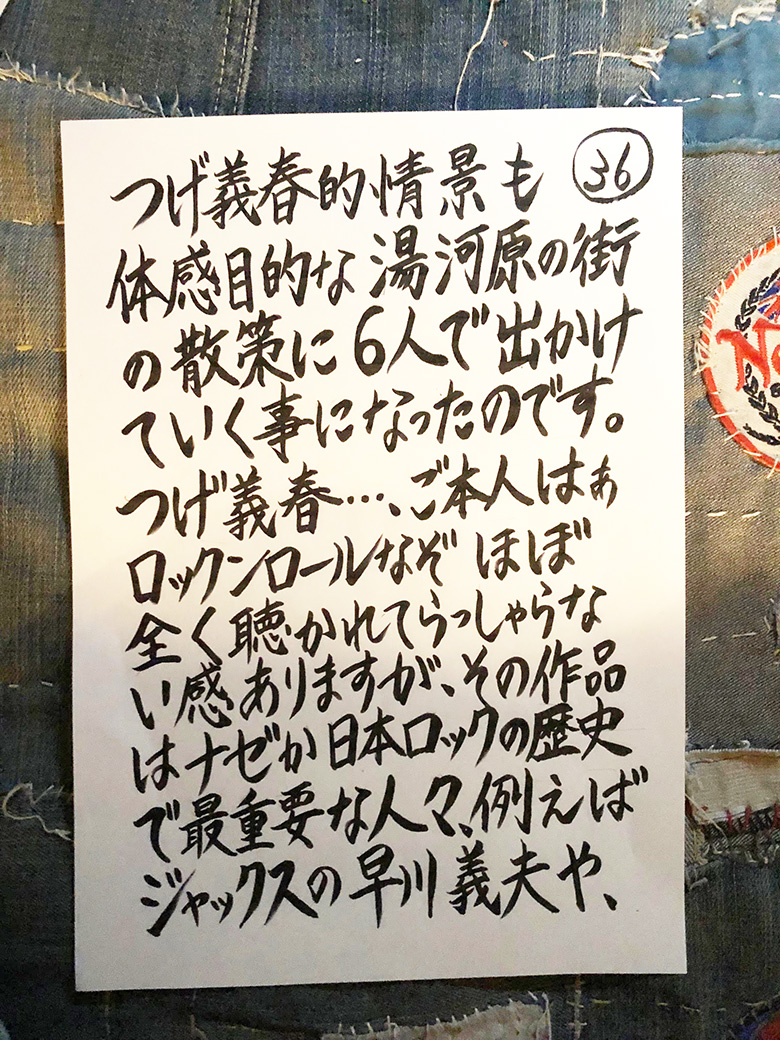 36
つげ義春的情景も
体感目的な湯河原の街
の散策に6人で出かけ
ていく事になったのです。
つげ義春…、ご本人はぁ
ロックンロールなぞ ほぼ
全く聴かれてらっしゃらな
い感ありますが、その作品
はナゼか日本ロックの歴史
で最重要な人々、例えば
ジャックスの早川義夫や、